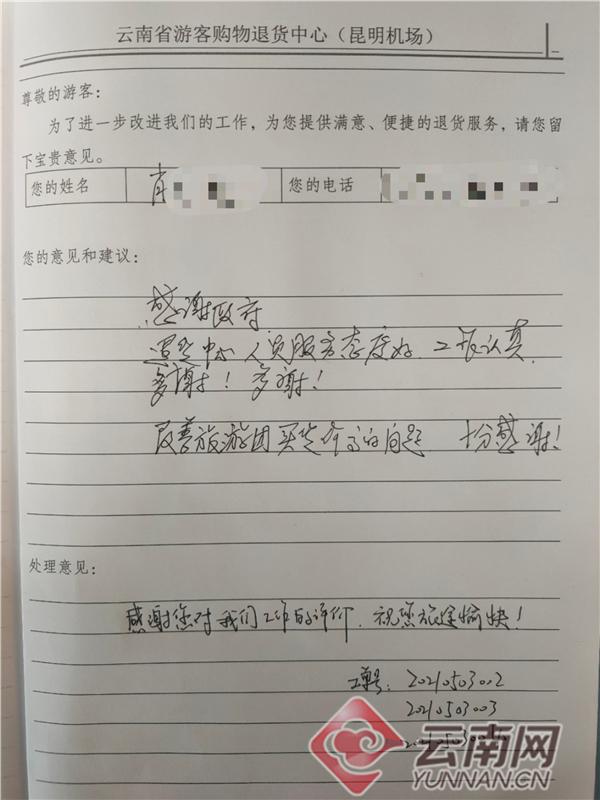 云南省游客购物退货中心（昆明机场）
尊敬的游客：
为了进一步改进我们的工作，为您提供满意、便捷的退货服务，请您留
下宝贵意见。
您的姓名 肖 您的电话
您的意见和建议：
感谢政府
退货中心人员服务态度好，工作认真，
多谢！多谢！
改善旅游团买货价高的问题，十分感谢！
处理意见：
感谢您对我们工作的评价，祝您旅途愉快！
工单号：20210503002
20210503003
云南网
YUNNAN.CN